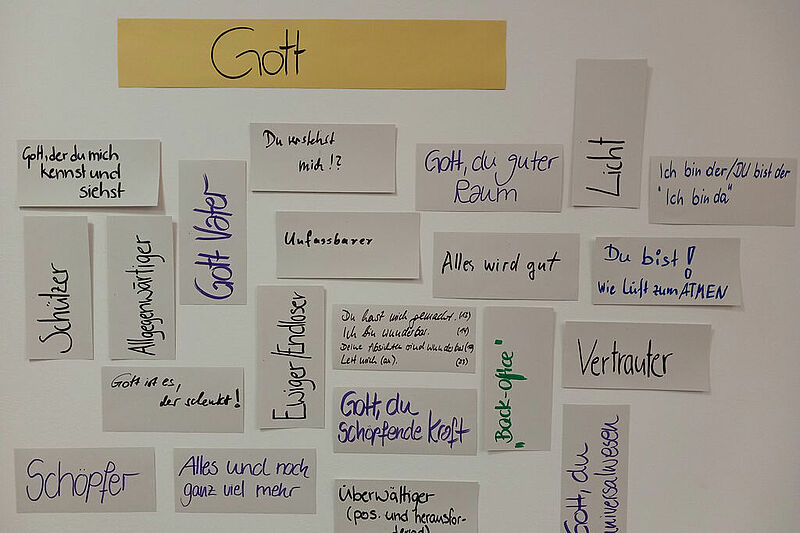 Gott
Gott, der du mich
kennst und
siehst
Du verstehst
mich!?
Gott, du guter
Raum
Licht
Ich bin der/DU bist der
"Ich bin da"
Gott Vater
Schützer
Allgegenwärtiger
Unfassbarer
Alles wird gut
Du bist!
wie Luft zum ATMEN
Ewiger/Endloser
Du hast mich gemacht. (13)
Ich bin wunderbar. (14)
Deine Absichten sind wunderbar
Leit mich (an). (23)
"Back-office"
Vertrauter
Gott ist es,
der schenkt!
Gott, du
schöpfende Kraft
Gott, du
universalwesen
Schöpfer
Alles und noch
ganz viel mehr
Überwältiger
(pos. und herausfor-